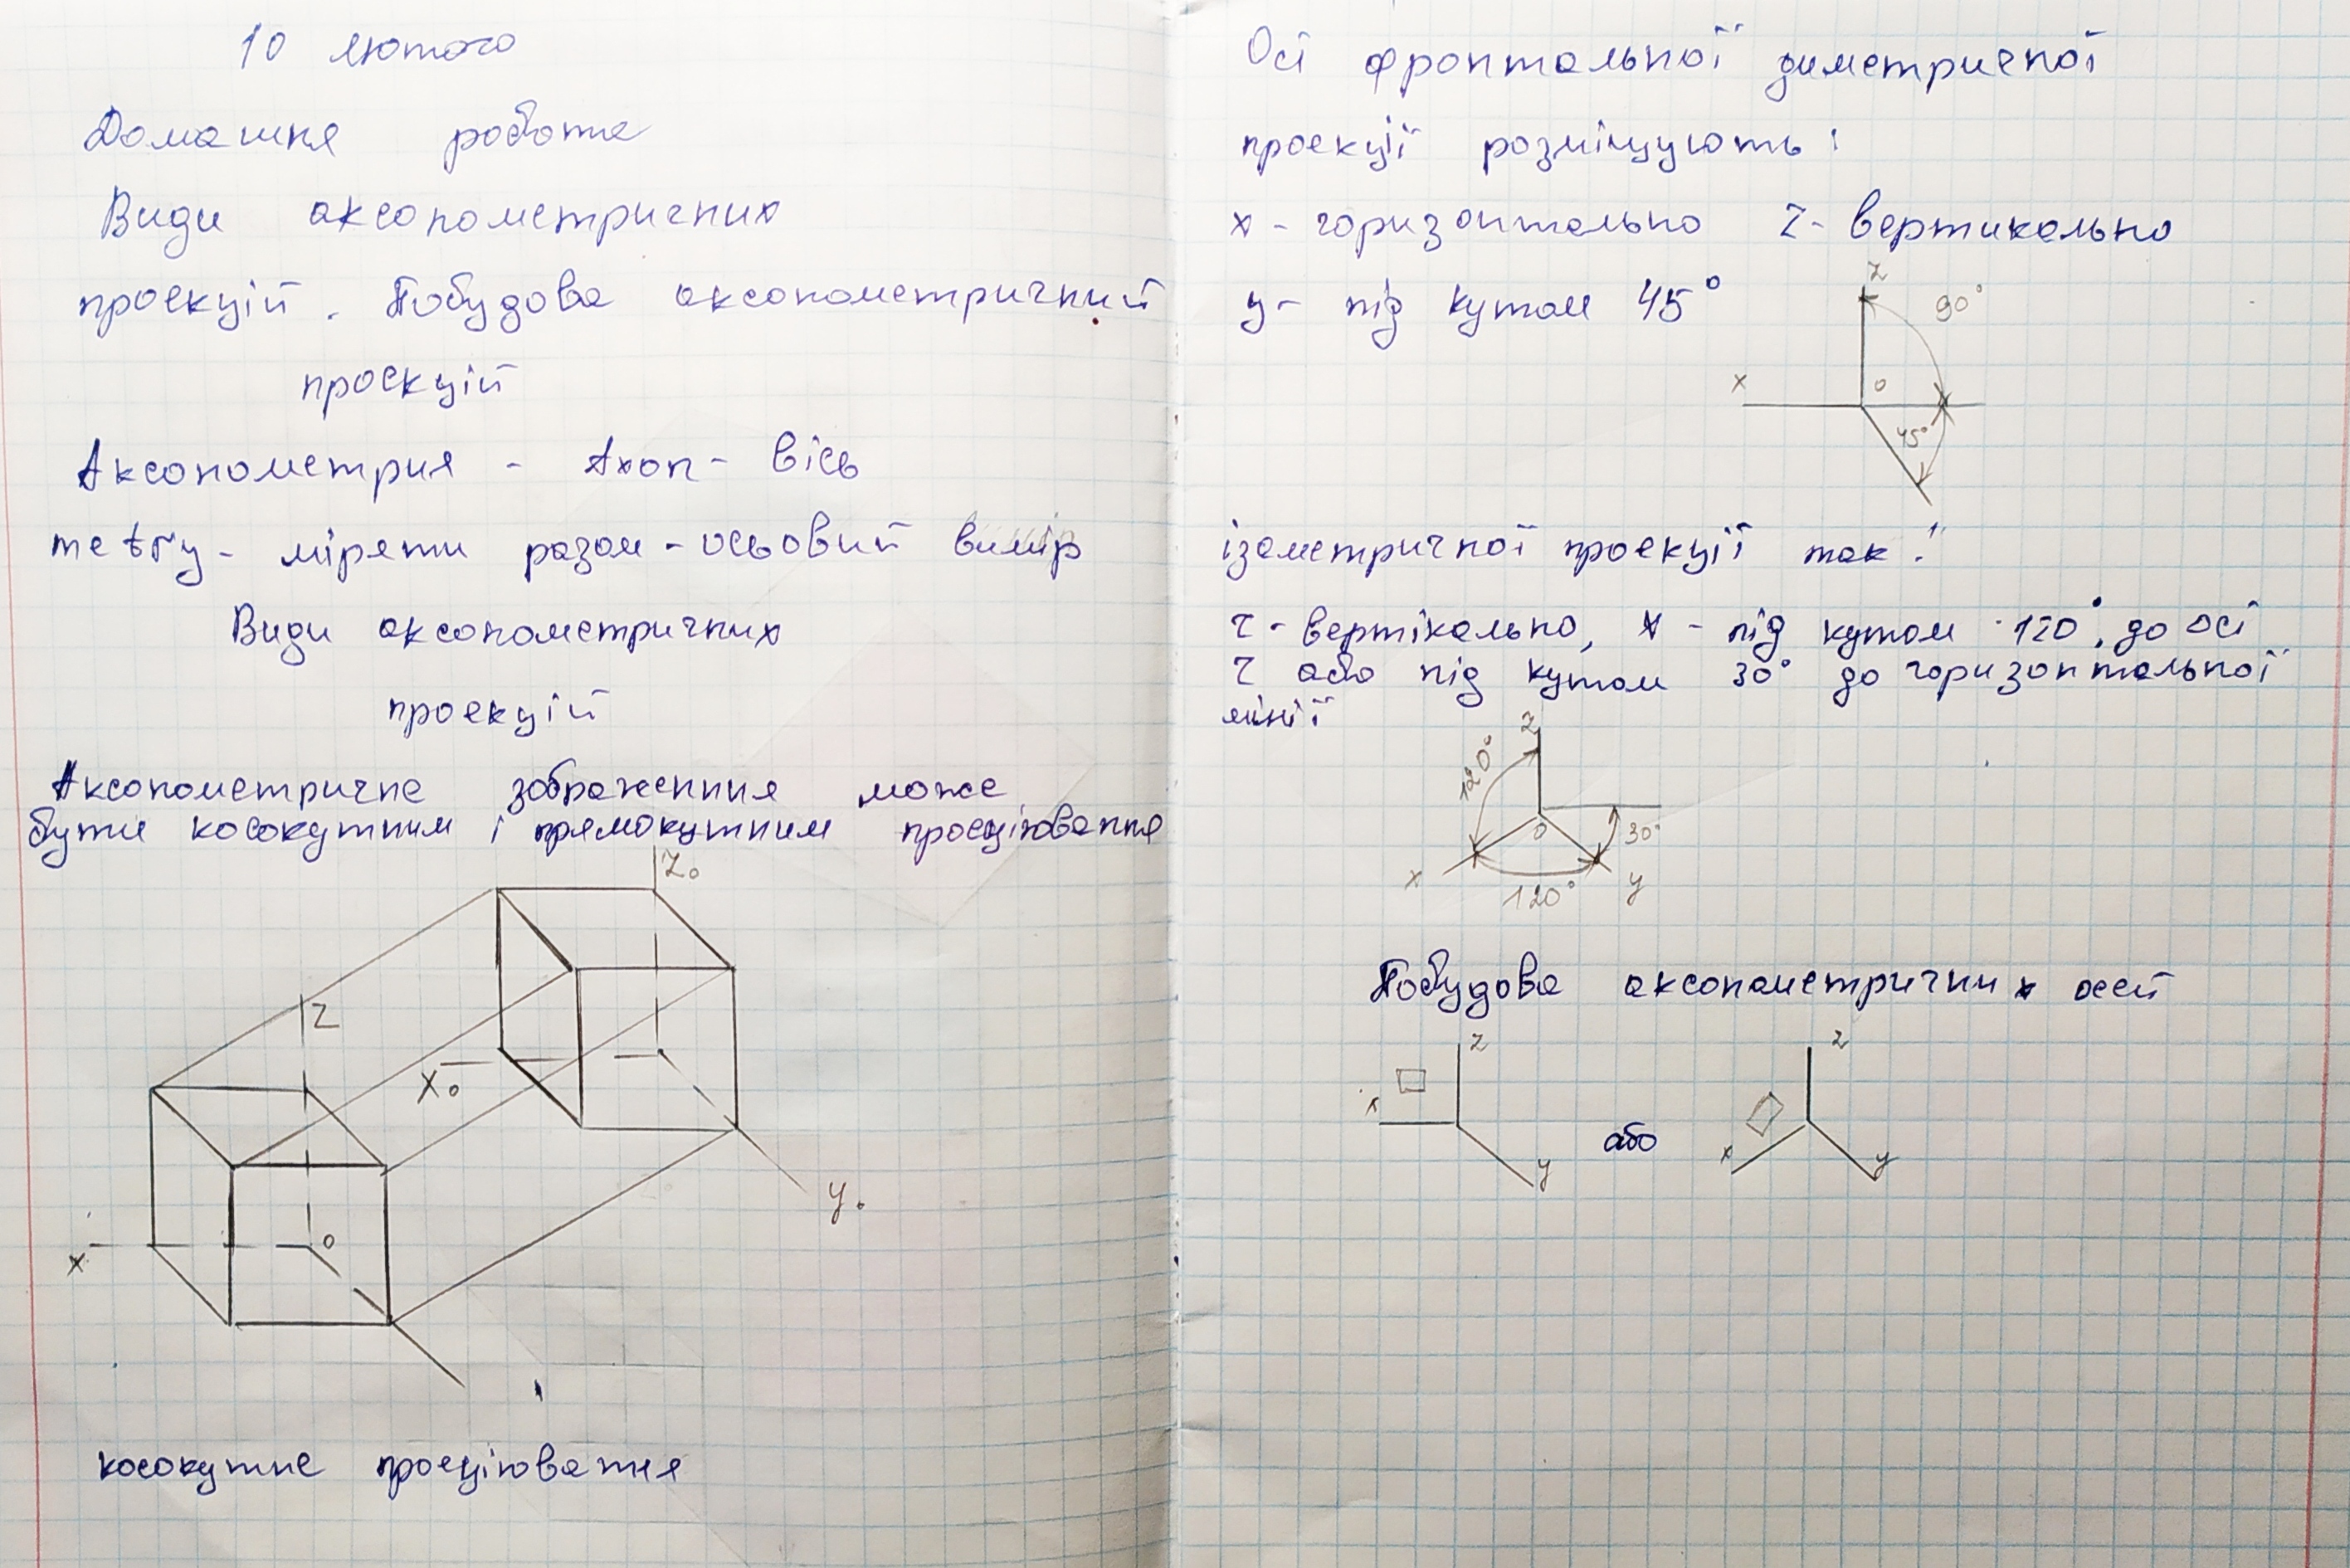 10 лютого
Домашня робота
Види аксонометричних
проекцій. Побудова аксонометричний
проєкцій
Аксонометрия - Axon - вісь
metry - міряти разом - осьовий вимір
Види аксонометричних
проекцій
Аксонометричне зображенння може
бути косокутним і прямокутним проеціювання
Z₀
Z
X₀
y₀
x
0
косокутне проеціювання
Осі фронтальної диметричної
проекціії розміщують:
x - горизонтально Z - вертикально
y - під кутом 45°
z
90°
x
0
45°
ізометричної проекціії так:
Z - вертікально, x - під кутом 120°, до осі
Z або під кутом 30° до горизонтальної
лінії
z
120°
0
30°
x
120°
y
Побудова аксонометричних осей
z
x
y
або
z
x
y